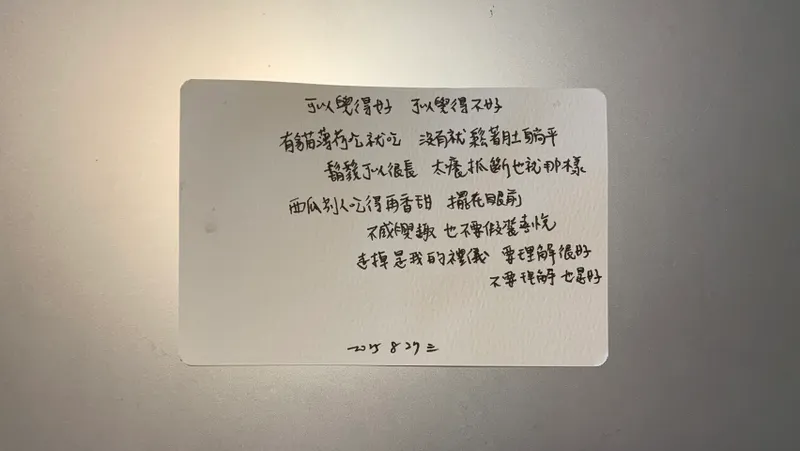 可以覺得好 可以覺得不好
有貓薄荷吃就吃 沒有就鬆著肚躺平
鬍鬚可以很長 太癢抓斷也就那樣
西瓜別人吃得再香甜 擺在眼前
不感興趣 也不要假裝喜悅
走掉是我的禮儀 要理解很好
不要理解也是好
2025 8 27 三